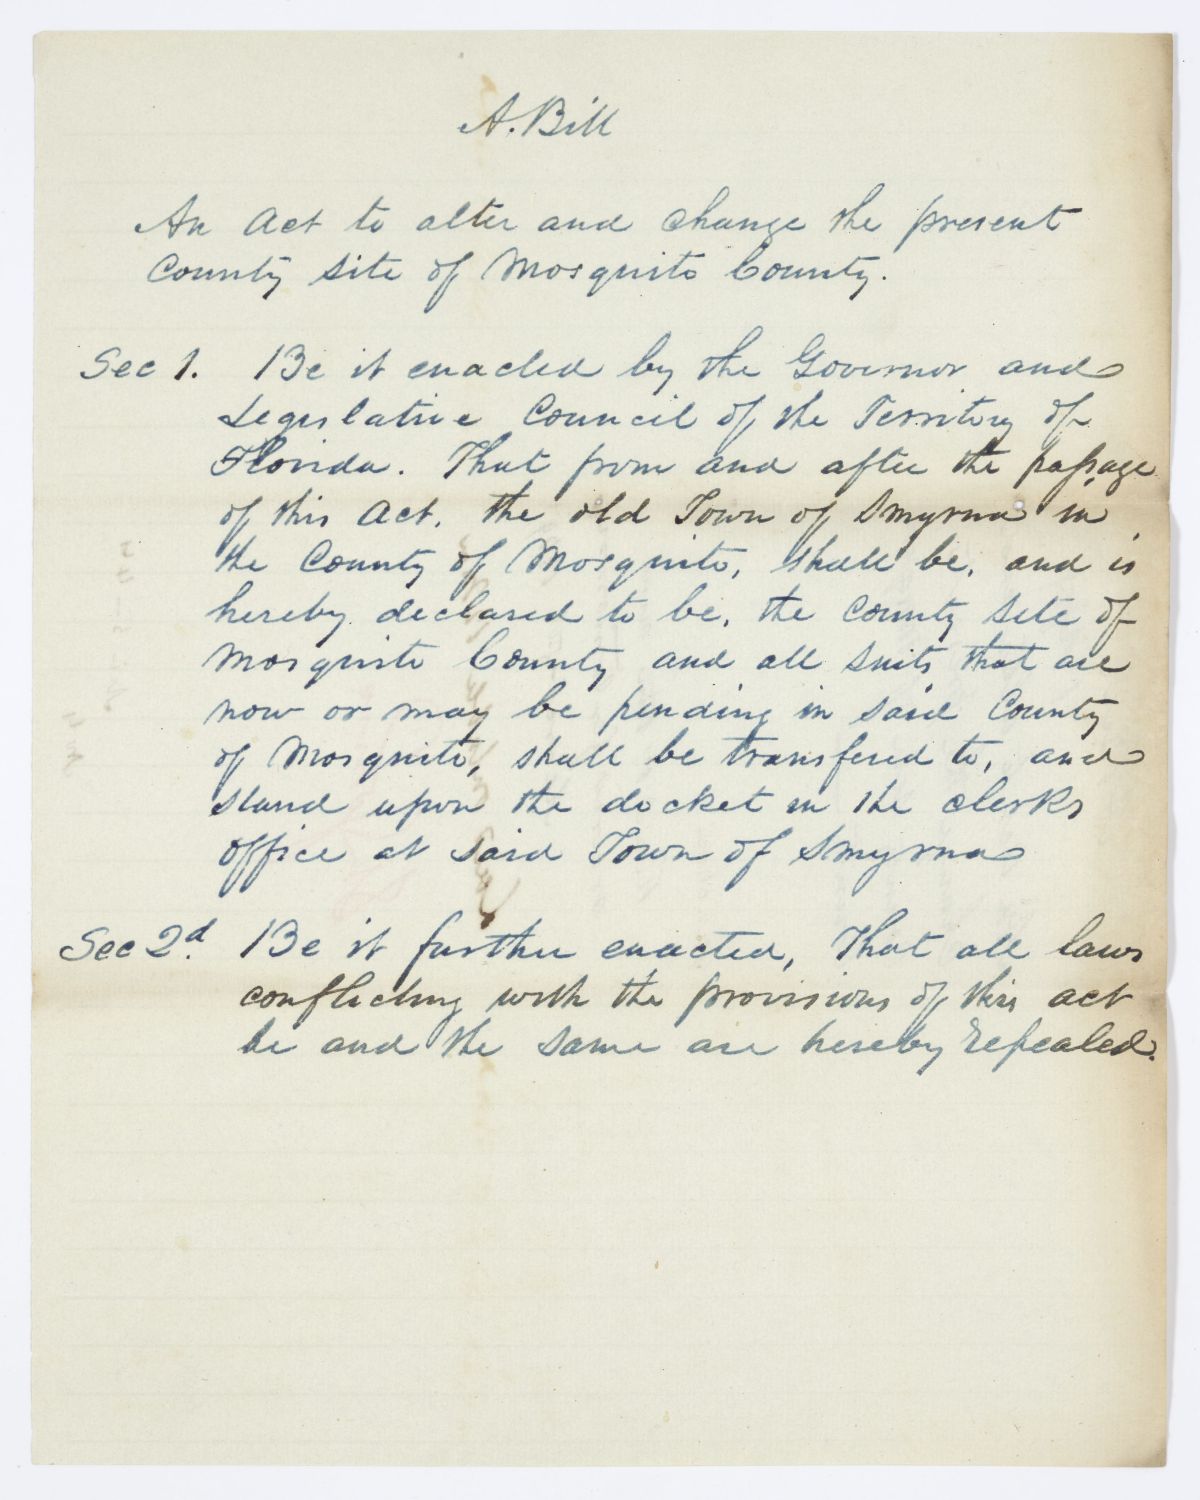 A. Bill
An Act to alter and change the present
County site of Mosquito County.
Sec 1. Be it enacted by the Governor and
Legislative Council of the Territory of
Florida. That from and after the passage
of this Act, the old Town of Smyrna in
the County of Mosquito, shall be, and is
hereby declared to be, the County site of
Mosquito County and all suits that are
now or may be pending in said County
of Mosquito, shall be transfered to, and
stand upon the docket in the clerks
office at said Town of Smyrna
Sec 2d. Be it further enacted, That all laws
conflicting with the provisions of this act
be and the same are hereby repealed.